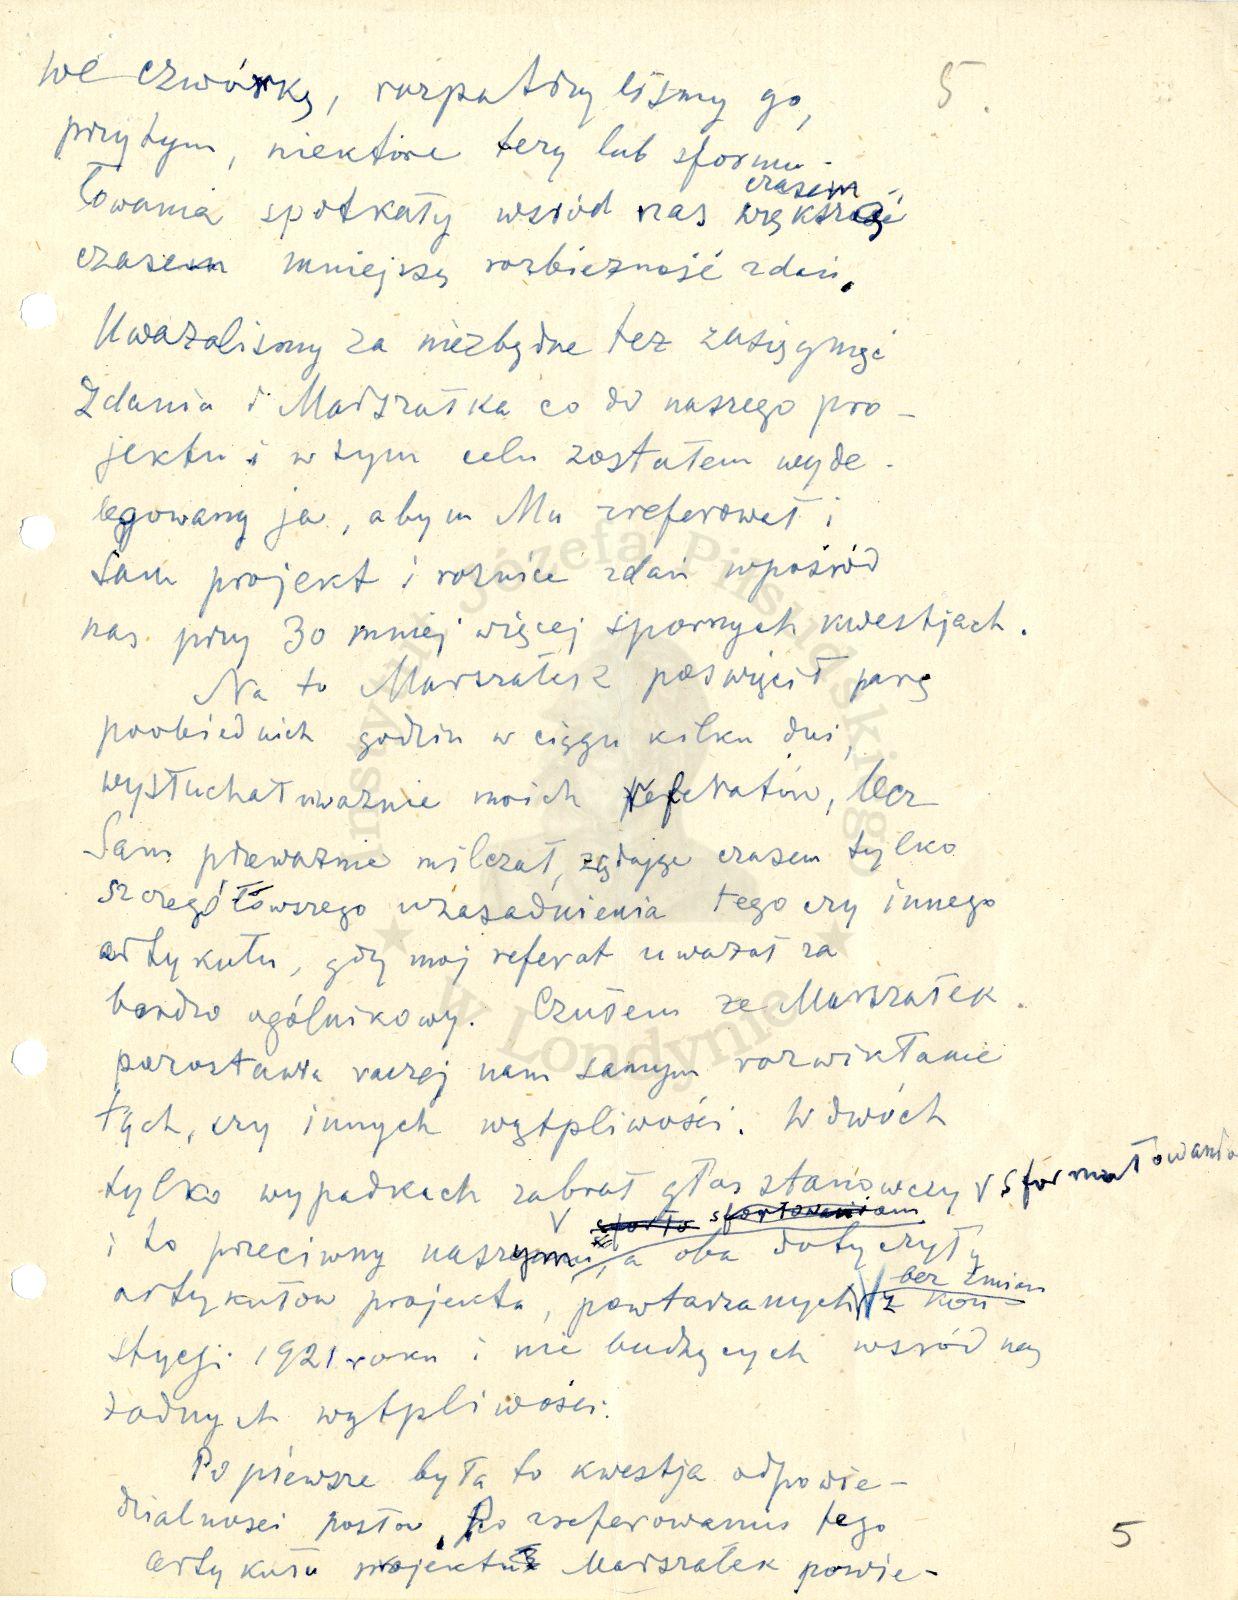 5.
we czwórkę, rozpatrzyliśmy go,
przytym, niektóre tezy lub sformu-
łowania spotkały wsród nas czasem większą
czasem mniejszą rozbieżność zdań.
Uważaliśmy za niezbędne też zasięgnąć
Zdania i Marszałka co do naszego pro-
jektu i w tym celu zostałem wyde-
legowany ja, abym Mu zreferował i
Sam projekt i roznice zdań wpośród
nas przy 30 mniej więcej spornych kwestjach.
Na to Marszałek poswięcił parę
poobiednich godzin w ciągu kilku dni,
wysłuchał uważnie moich referatów, lecz
Sam przeważnie milczał, żądając czasem tylko
szczegółowszego uzasadnienia tego czy innego
artykułu, gdy moj referat uważał za
bardzo ogólnikowy. Czułem ze Marszałek
pozostawia raczej nam samym rozwikłanie
tych, czy innych wątpliwości. W dwóch
tylko wypadkach zabrał głos stanowczy
sformułowania
i to przeciwny naszym, a oba dotyczyły
artykułów projektu, powtarzanych bez zmian z kon-
stycji 1921 roku i nie budzących wsród nas
żadnych wątpliwości.
Po pierwsze była to kwestja odpowie-
dzialnosci posłów. Po zreferowaniu tego
artykułu projektu Marszałek powie-
5
Instytut Józefa Piłsudskiego
w Londynie